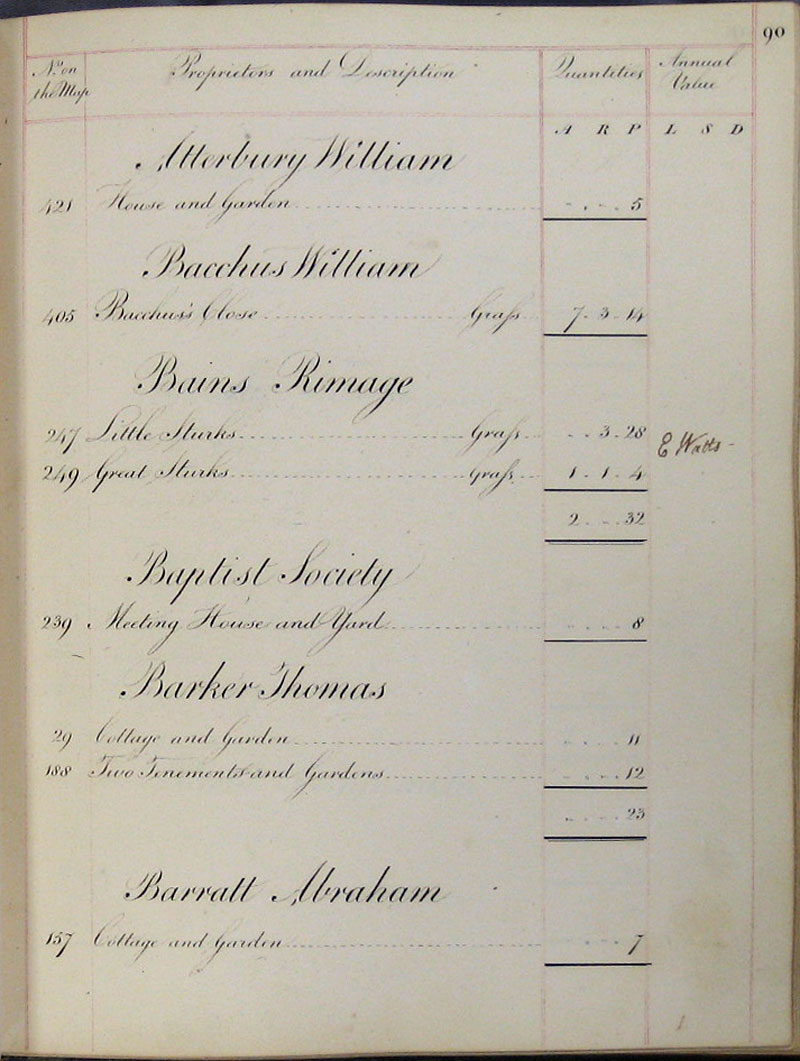 90
No. on the Map Proprietors and Description Quantities Annual Value
A R P L S D
Atterbury William
421 House and Garden 5
Bacchus William
405 Bacchus's Close Grass 7 - 3 - 14
Bains Rimage
247 Little Sturks Grass 3 - 28 E Watts
249 Great Sturks Grass 1 - 1 - 4
2 - - 32
Baptist Society
239 Meeting House and Yard 8
Barker Thomas
29 Cottage and Garden 11
188 Two Tenements and Gardens 12
23
Barratt Abraham
157 Cottage and Garden 7